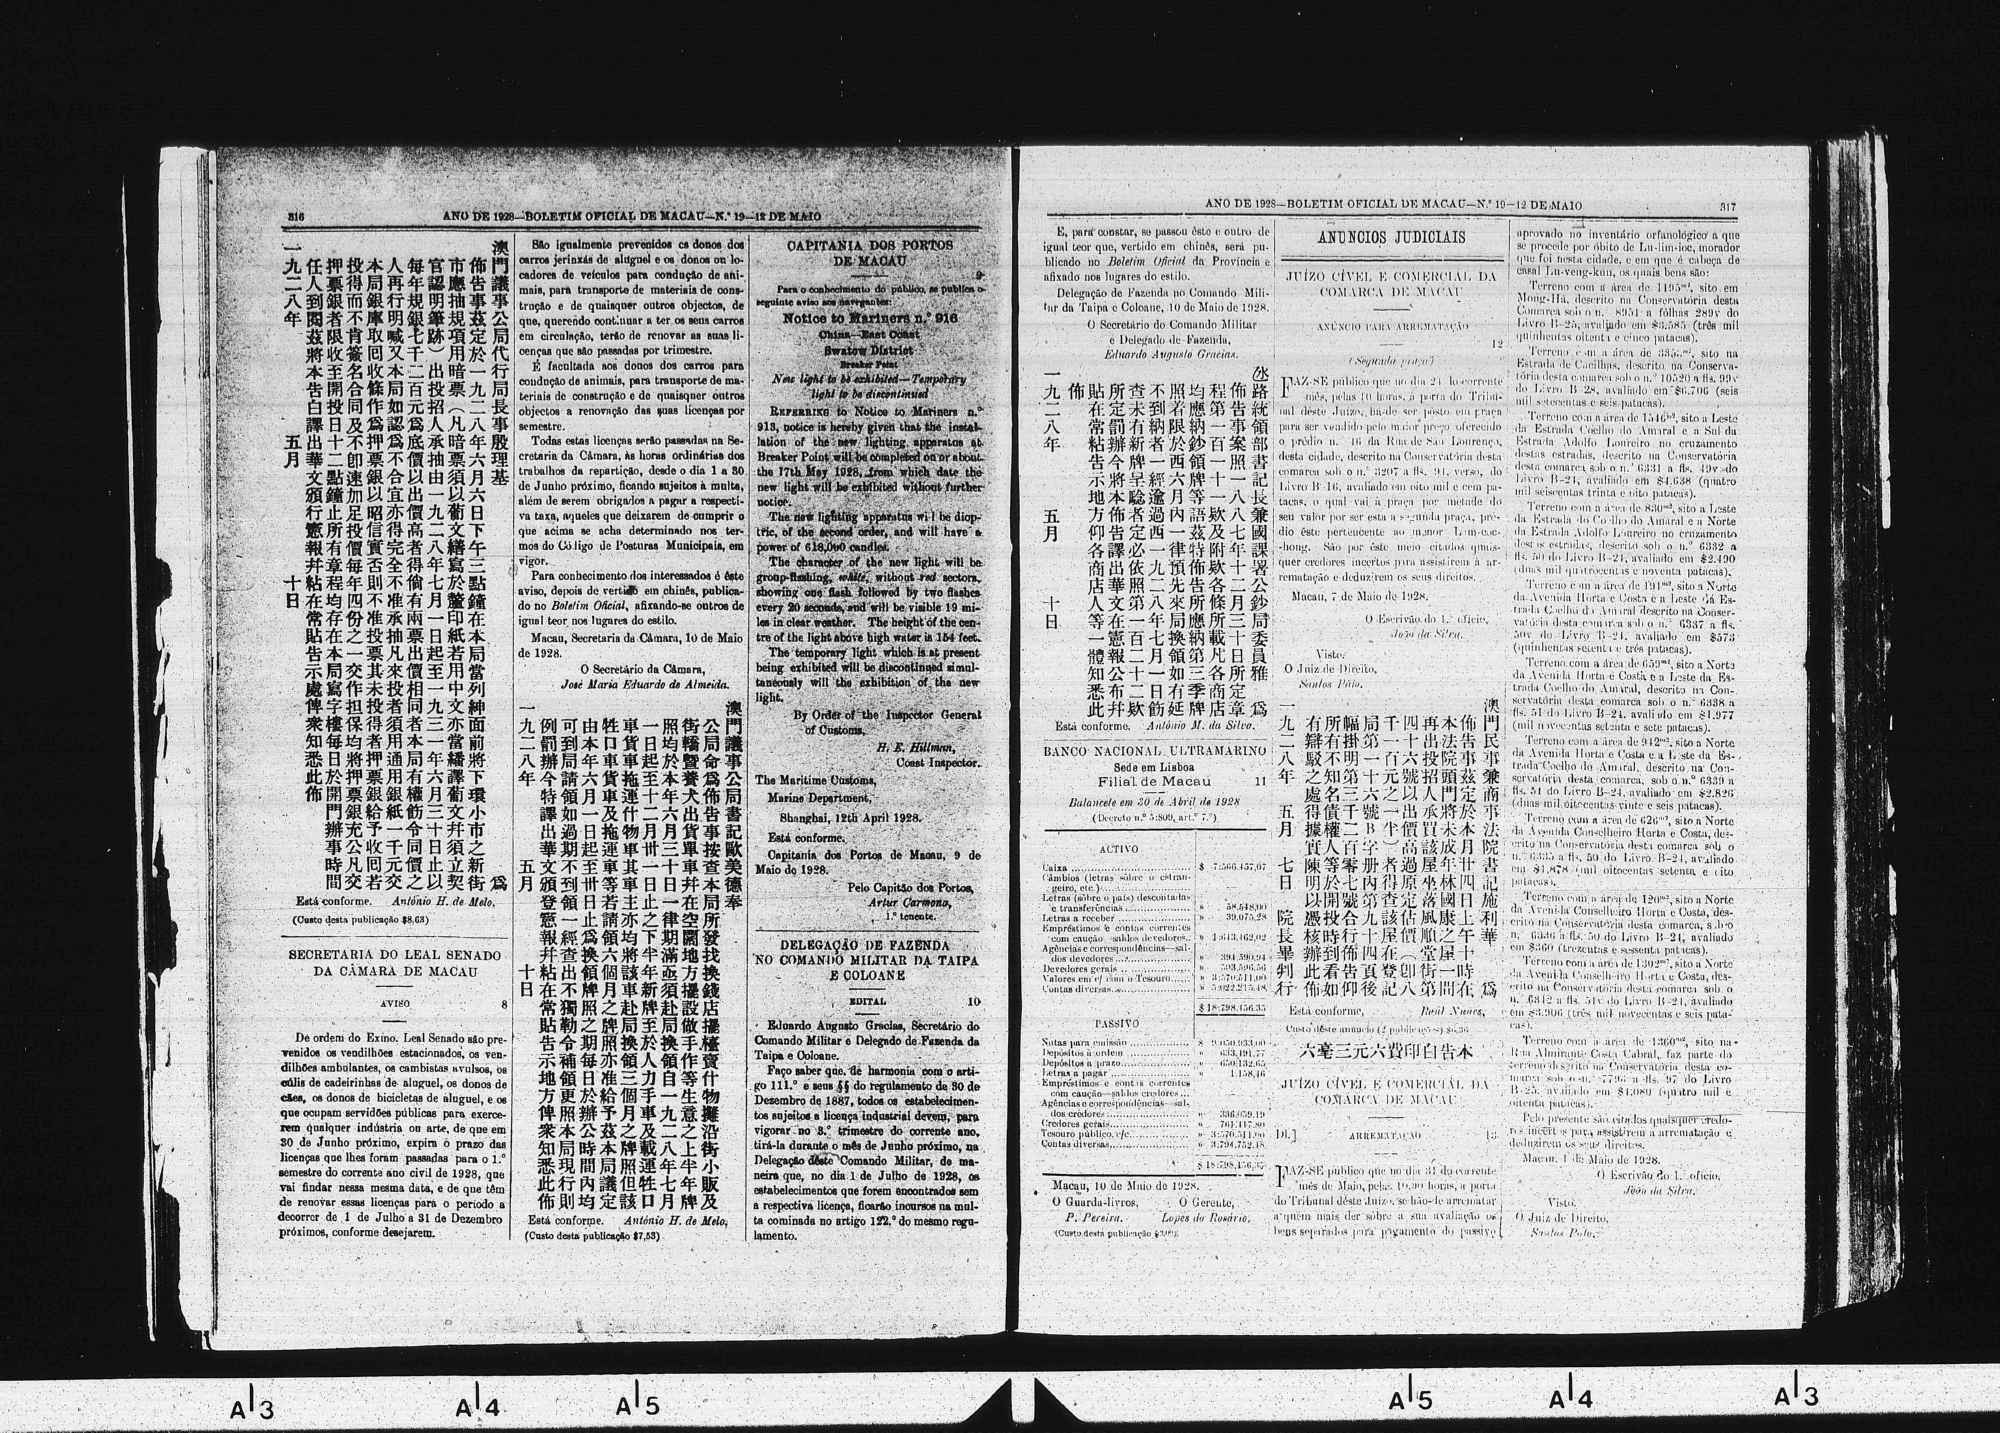 316
ANO DE 1928—BOLETIM OFICIAL DE MACAU—N.º 19—12 DE MAIO
澳門議事公局代行局長事殷理基 爲
佈告事茲定於一九二八年六月六日下午三點鐘在本局當列紳面前將下環小市之新街
市應抽規項用暗票（凡暗票須以葡文繕寫於釐印紙若用中文亦當繙譯葡文幷須立契
官認明筆跡）出投招人承抽由一九二八年七月一日起至一九三一年六月三十日止以
每年規銀七千二百元爲底價以出價高者得倘有兩票出價相同者本局有權飭令同價之
人再行明喊又本局如認爲不合宜亦得完全不准承抽凡來投者須用通用銀紙一千元交
本局銀庫取回收條作爲押票銀以昭信實否則不准投票其未投得者押票銀給予收囘若
投得而不肯簽名合同及不卽速加足投價每年四份之一交作担保均將押票銀充公凡交
押票銀者限收至開投日十二點鐘止所有章程均存在本局寫字樓每日於開門辦事時間
任人到閱茲將本告白譯出華文頒行憲報幷粘在常貼告示處俾衆知悉此佈
一九二八年 五月 十日
Está conforme. António H. de Melo.
(Custo desta publicação $8,63)
SECRETARIA DO LEAL SENADO
DA CÂMARA DE MACAU
AVISO 8
De ordem do Exmo. Leal Senado são pre-
venidos os vendilhões estacionados, os ven-
dilhões ambulantes, os cambistas avulsos, os
cúlis de cadeirinhas de aluguel, os donos de
cães, os donos de bicicletas de aluguel, e os
que ocupam servidões públicas para exerce-
rem qualquer indústria ou arte, de que em
30 de Junho próximo, expira o prazo das
licenças que lhes foram passadas para o 1.º
semestre do corrente ano civil de 1928, que
vai findar nessa mesma data, e de que têm
de renovar essas licenças para o período a
decorrer de 1 de Julho a 31 de Dezembro
próximos, conforme desejarem.
São igualmente prevenidos os donos dos
carros jerinxás de aluguel e os donos ou lo-
cadores de veículos para condução de ani-
mais, para transporte de materiais de cons-
trução e de quaisquer outros objectos, de
que, querendo continuar a ter os seus carros
em circulação, terão de renovar as suas li-
cenças que são passadas por trimestre.
É facultada aos donos dos carros para
condução de animais, para transporte de ma-
teriais de construção e de quaisquer outros
objectos a renovação das suas licenças por
semestre.
Todas estas licenças serão passadas na Se-
cretaria da Câmara, às horas ordinárias dos
trabalhos da repartição, desde o dia 1 a 30
de Junho próximo, ficando sujeitos à multa,
além de serem obrigados a pagar a respecti-
va taxa, aqueles que deixarem de cumprir o
que acima se acha determinado nos ter-
mos do Código de Posturas Municipais, em
vigor.
Para conhecimento dos interessados é êste
aviso, depois de vertido em chinês, publica-
do no Boletim Oficial, afixando-se outros de
igual teor nos lugares do estilo.
Macau, Secretaria da Câmara, 10 de Maio
de 1928.
O Secretário da Câmara,
José Maria Eduardo de Almeida.
澳門議事公局書記歐美德奉
公局命爲佈告事按查本局所發找換錢店擺檯賣什物攤沿街小販及
街轎暨養犬出貨單車幷在空闊地方擺設做手作等生意之上半年牌
照均於本年六月三十日一律期滿亟須赴局換領自一九二八年七月
一日起至十二月卅一日止之下半年新牌至於人力手車及載運牲口
車貨車拖連什物車其車主亦均將該車赴局換領三個月之牌照但該
牲口車貨車及拖運車等若請領六個月之牌照亦准給予茲本局議定
由本年六月一日起至卅日止爲換領牌照之期每日於辦公時間內均
可到局請領如過期不到領一經查出不獨勒令補領更照本局現行則
例罰辦今特譯出華文頒登憲報幷粘在常貼告示地方俾衆知悉此佈
一九二八年 五月 十日
Está conforme. António H. de Melo,
(Custo desta publicação $7,53)
CAPITANIA DOS PORTOS
DE MACAU
9
Para o conhecimento do público, se publica o
seguinte aviso aos navegantes:
Notice to Mariners n.º 916
China—East Coast
Swatow District
Breaker Point
New light to be exhibited—Temporary
light to be discontinued
REFERRING to Notice to Mariners n.º
913, notice is hereby given that the instal-
lation of the new lighting apparatus at
Breaker Point will be completed on or about
the 17th May 1928, from which date the
new light will be exhibited without further
notice.
The new lighting apparatus will be diop-
tric, of the second order, and will have a
power of 618,000 candles.
The character of the new light will be
group-flashing, white, without red sectors,
showing one flash followed by two flashes
every 20 seconds, and will be visible 19 mi-
les in clear weather. The height of the cen-
tre of the light above high water is 154 feet.
The temporary light which is at present
being exhibited will be discontinued simul-
taneously will the exhibition of the new
light.
By Order of the Inspector General
of Customs,
H. E. Hillman,
Coast Inspector.
The Maritime Customs,
Marine Department,
Shanghai, 12th April 1928.
Está conforme.
Capitania dos Portos de Macau, 9 de
Maio de 1928.
Pelo Capitão dos Portos,
Artur Carmona,
1.º tenente.
DELEGAÇÃO DE FAZENDA
NO COMANDO MILITAR DA TAIPA
E COLOANE
EDITAL 10
Eduardo Augusto Gracias, Secretário do
Comando Militar e Delegado de Fazenda da
Taipa e Coloane.
Faço saber que, de harmonia com o arti-
go 111.º e seus §§ do regulamento de 30 de
Dezembro de 1887, todos os estabelecimen-
tos sujeitos a licença industrial devem, para
vigorar no 3.º trimestre do corrente ano,
tirá-la durante o mês de Junho próximo, na
Delegação dêste Comando Militar, de ma-
neira que, no dia 1 de Julho de 1928, os
estabelecimentos que forem encontrados sem
a respectiva licença, ficarão incursos na mul-
ta cominada no artigo 122.º do mesmo regu-
lamento.
ANO DE 1928—BOLETIM OFICIAL DE MACAU—N.º 19—12 DE MAIO
317
E, para constar, se passou êste e outro de
igual teor que, vertido em chinês, será pu-
blicado no Boletim Oficial da Província e
afixado nos lugares do estilo.
Delegação de Fazenda no Comando Mili-
tar da Taipa e Coloane, 10 de Maio de 1928.
O Secretário do Comando Militar
e Delegado de Fazenda,
Eduardo Augusto Gracias.
路統領部書記長兼國課署公鈔局委員雅 爲
佈告事案照一八八七年十二月三十日所定章
程第一百一十一欵及附欵各條所載凡各商店
均應納鈔領牌等語茲特佈告所納第三季牌
照者限於西六月內一律預先來局換領如有延
不到納者一經逾過西一九二八年七月一日飭
查未有新牌呈騐者定必依第一百二十二欵
所定罰辦今將本佈告譯出華文在憲報公布幷
貼在常粘告示地方仰各商店人等一體知悉此
佈
一九二八年 五月 十日
Está conforme. António M. da Silva.
BANCO NACIONAL ULTRAMARINO
Sede em Lisboa
Filial de Macau 11
Balancete em 30 de Abril de 1928
(Decreto n.º 5:809, art.º 7.º)
ACTIVO
Caixa $ 7:566.457,67
Câmbios (letras sôbre o estran-
geiro, etc.)
Letras (sôbre o país) descontadas
e transferências » 58.548,00
Letras a receber » 39.075,28
Empréstimos e contas correntes
com caução—saldos devedores » 1:643.462,02
Agências e correspondências—sal-
dos devedores » 394.590,94
Devedores gerais » 503.596,56
Valores em c/ com o Tesouro » 3:570.511,00
Contas diversas » 5:022.215,48
$ 18:798.456,35
PASSIVO
Notas para emissão
Depósitos à ordem » 633.191,77
Depósitos a prazo » 650.132,65
Letras a pagar » 1.158,16
Empréstimos e contas correntes
com caução—saldos credores
Agências e correspondências—sal-
dos credores » 336.059,19
Credores gerais
Tesouro público, c/c. » 3:570.511,00
Contas diversas » 3:794.752,18
$ 18:798.456,35
Macau, 10 de Maio de 1928.
O Guarda-livros, O Gerente,
P. Pereira. Lopes do Rosário,
(Custo desta publicação
ANÚNCIOS JUDICIAIS
JUÍZO CÍVEL E COMERCIAL DA
COMARCA DE MACAU
ANÚNCIO PARA ARREMATAÇÃO
12
(Segunda praça)
FAZ-SE público que no dia 24 do corrente
mês, pelas 10 horas, à porta do Tribu-
nal dêste Juízo, há-de ser pôsto em praça
para ser vendido pelo maior preço oferecido
o prédio n.º 16 da Rua de São Lourenço,
desta cidade, descrito na Conservatória desta
comarca sob o n.º 3207 a fls. 94, verso, do
Livro B-16, avaliado em oito mil e cem pa-
tacas, o qual vai à praça por metade do
seu valor por ser esta a segunda praça, pré-
dio êste pertencente ao menor Lam-coc-
-hong. São por êste meio citados quais-
quer credores incertos para assistirem à ar-
rematação e deduzirem os seus direitos.
Macau, 7 de Maio de 1928.
O Escrivão do 1.º ofício,
João da Silva.
Visto.
O Juiz de Direito,
Santos Pato.
澳門民事兼商事法院書記利華 爲
佈告事茲定於本月廿四日上午十時在
本法院頭門將未成年林國之屋一間在
再出投招人承買該屋坐落風順堂街第
Está conforme, Raúl Nunes,
Custo dêste anúncio (2 publicações) $6,36
六毫三元六費印白告本
JUÍZO CÍVEL E COMERCIAL DA
COMARCA DE MACAU
DI.] ARREMATAÇÃO 13
FAZ-SE público que no dia 31 do corrente
mês de Maio, pelas 10,30 horas, à porta
do Tribunal dêste Juízo, se hão-de arrematar
a quem mais der sôbre a sua avaliação os
bens separados para pagamento do passivo
aprovado no inventário orfanológico a que
se procede por óbito de Lu-lim-ioc, morador
que foi nesta cidade, e em que é cabeça de
casal Lu-veng-kun, os quais bens são:
Terreno com a área de 1195m², sito em
Mong-Há, descrito na Conservatória desta
Comarca sob o n.º 8951 a fôlhas 289v do
Livro B-25, avaliado em $3.585 (três mil
quinhentas oitenta e cinco patacas).
Terreno com a área de 335m², sito na
Estrada de Cacilhas, descrito na Conserva-
tória desta comarca sob o n.º 10520 a fls. 99v
do Livro B-28, avaliado em $6.706 (seis
mil setecentas e seis patacas).
Terreno com a área de 1546m², sito a Leste
da Estrada Coelho do Amaral e a Sul da
Estrada Adolfo Loureiro no cruzamento
destas estradas, descrito na Conservatória
desta comarca sob o n.º 6331 a fls. 49v do
Livro B-24, avaliado em $4.638 (quatro
mil seiscentas trinta e oito patacas).
Terreno com a área de 830m², sito a Leste
da Estrada Coelho do Amaral e a Norte
da Estrada Adolfo Loureiro no cruzamento
destas estradas, descrito sob o n.º 6332 a
fls. 50 do Livro B-24, avaliado em $2.490
(duas mil quatrocentas e noventa patacas).
Terreno com a área de 191m², sito a Norte
da Avenida Horta e Costa e a Leste da Es-
trada Coelho do Amaral descrito na Conser-
vatória desta comarca sob o n.º 6337 a fls.
50v do Livro B-24, avaliado em $573
(quinhentas setenta e três patacas).
Terreno com a área de 659m², sito a Norte
da Avenida Horta e Costa e a Leste da Es-
trada Coelho do Amaral, descrito na Con-
servatória desta comarca sob o n.º 6338 a
fls. 51 do Livro B-24, avaliado em $1.977
(mil novecentas setenta e sete patacas).
Terreno com a área de 942m², sito a Norte
da Avenida Horta e Costa e a Leste da Es-
trada Coelho do Amaral, descrito na Con-
servatória desta comarca, sob o n.º 6339 a
fls. 51 do Livro B-24, avaliado em $2.826
(duas mil oitocentas vinte e seis patacas).
Terreno com a área de 626m², sito a Norte
da Avenida Conselheiro Horta e Costa, des-
crito na Conservatória desta comarca sob o
n.º 6335 a fls. 50 do Livro B-24, avaliado
em $1.878 (mil oitocentas setenta e oito
patacas).
Terreno com a área de 120m², sito a Norte
da Avenida Conselheiro Horta e Costa, des-
crito na Conservatória desta comarca, sob o
n.º 6336 a fls. 50 do Livro B-24, avaliado
em $360 (trezentas e sessenta patacas).
Terreno com a área de 1302m², sito a Norte
da Avenida Conselheiro Horta e Costa, des-
crito na Conservatória desta comarca sob o
n.º 6342 a fls. 51v do Livro B-24, avaliado
em $3.906 (três mil novecentas e seis pata-
cas).
Terreno com a área de 1360m², sito na
Rua Almirante Costa Cabral, faz parte do
terreno descrito na Conservatória desta co-
marca sob o n.º 7796 a fls. 97 do Livro
B-25, avaliado em $4.080 (quatro mil e
oitenta patacas).
Pelo presente são citados quaisquer credo-
res incertos para assistirem à arrematação e
deduzirem os seus direitos.
Macau, 1 de Maio de 1928.
O Escrivão do 1.º ofício,
João da Silva.
Visto.
O Juiz de Direito,
Santos Pato.
A3 A4 A5 A5 A4 A3